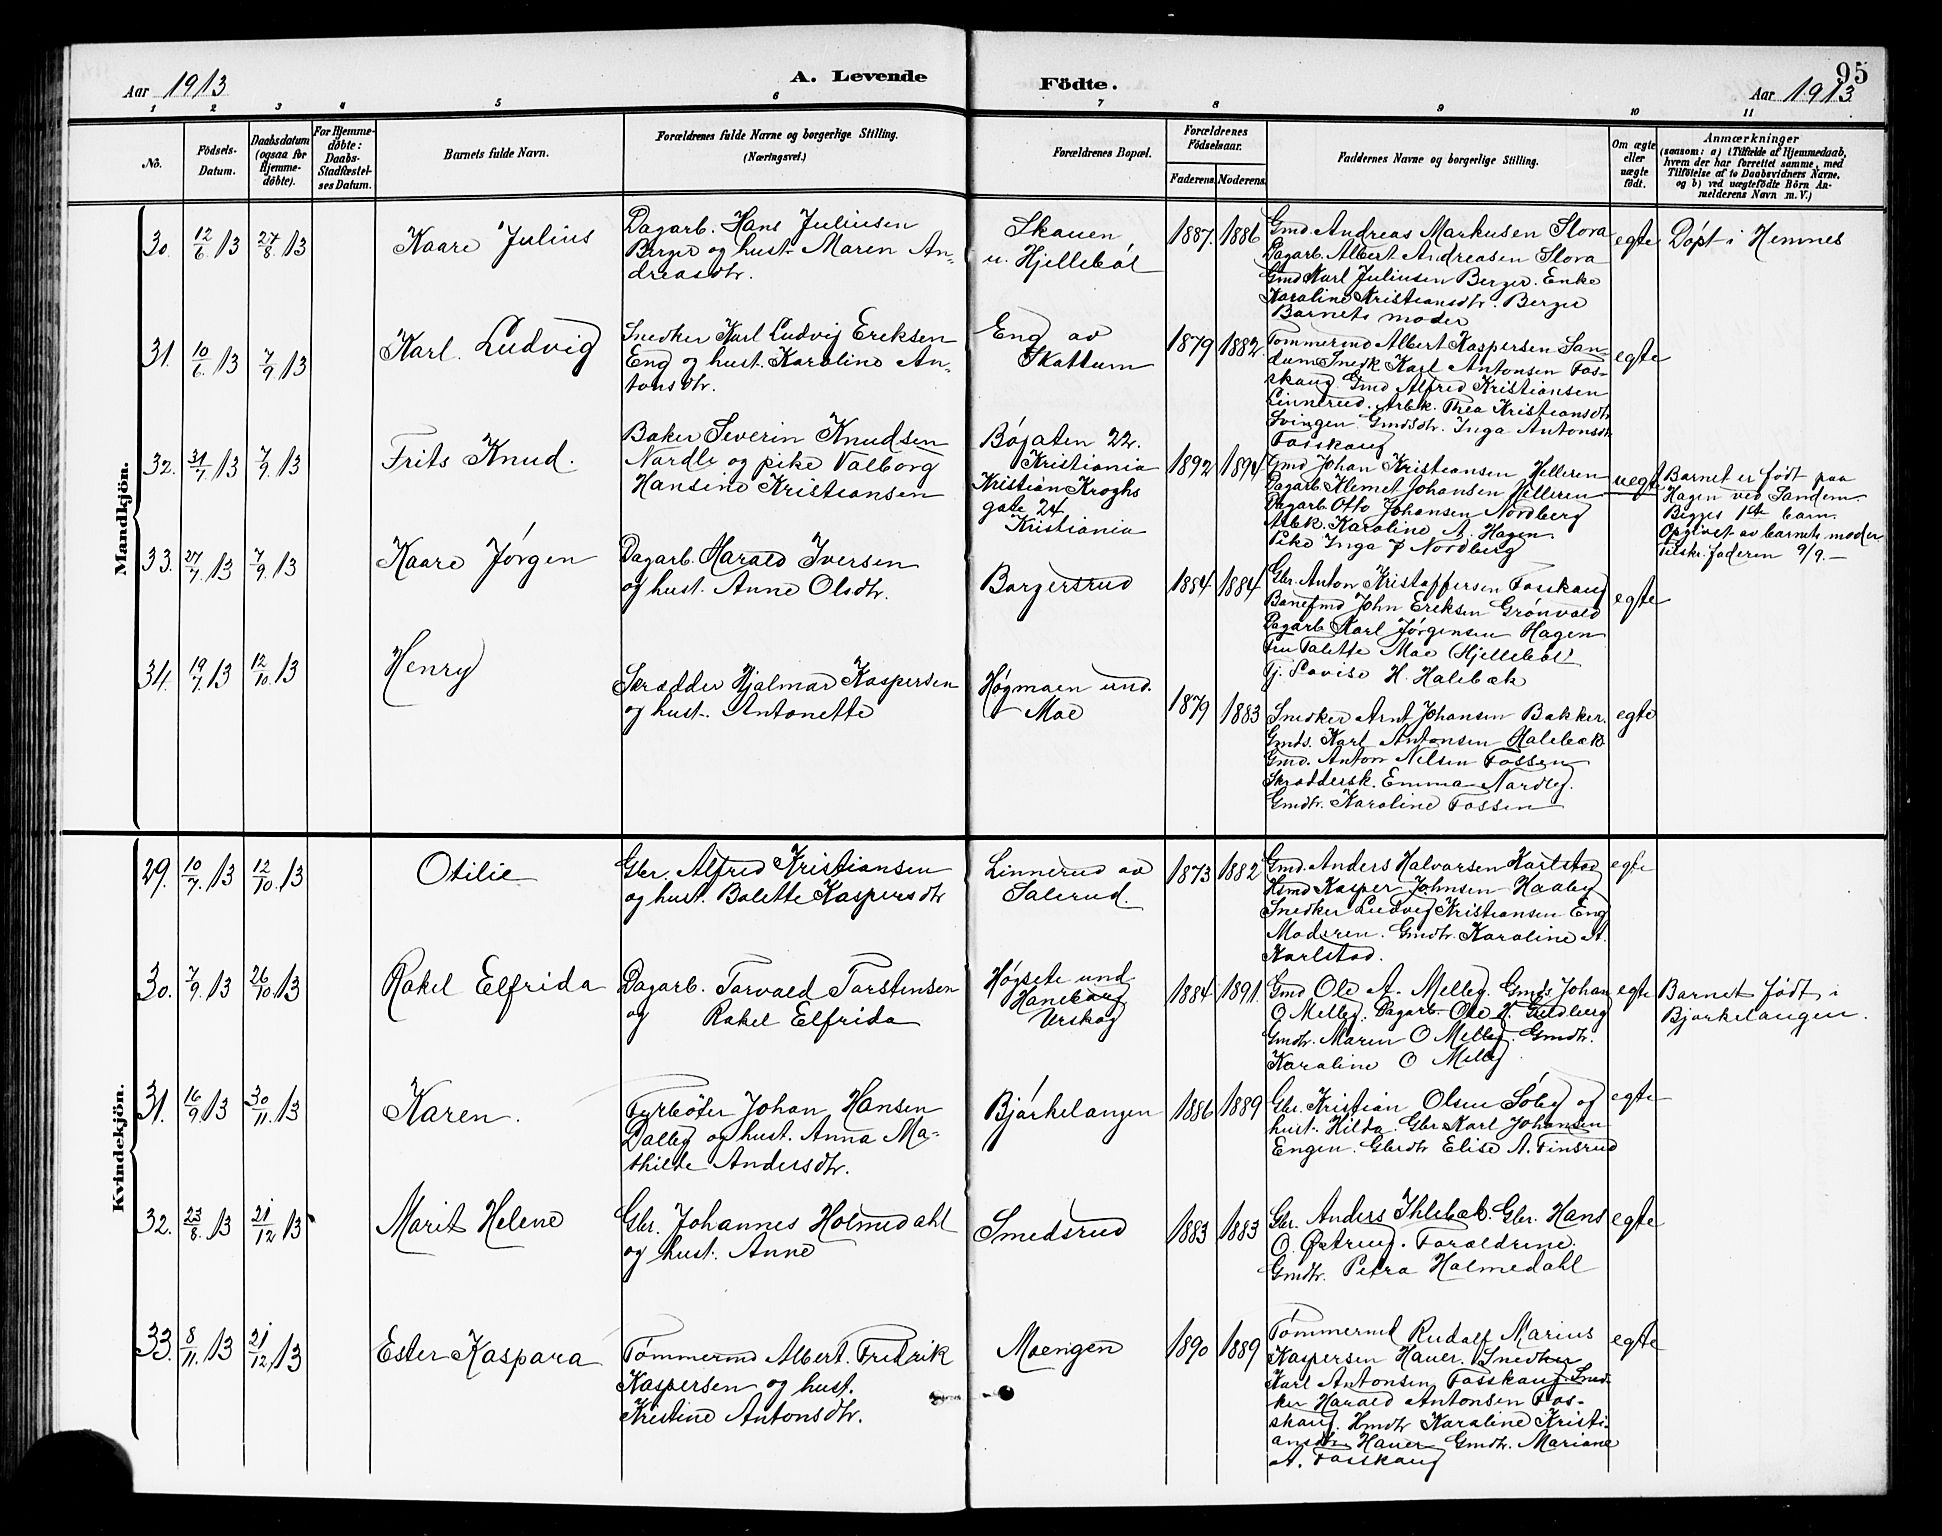 95
Aar 1913
A. Levende
Födte.
Aar 1913
1 2 3 4 5 6 7 8 9 10 11
No.
Födsels-
Datum.
Daabsdatum
(ogsaa for
Hjemme-
döbte).
For Hjemme-
döbte:
Daabs-
Stadfæstel-
ses Datum.
Barnets fulde Navn.
Forældrenes fulde Navne og borgerlige Stilling.
(Næringsvei.)
Forældrenes Bopæl.
Forældrenes
Födselsaar.
Faderens.
Moderens.
Faddernes Navne og borgerlige Stilling.
Om ægte
eller
uægte
födt.
Anmærkninger
(saasom: a) i Tilfælde af Hjemmedaab,
hvem der har forrettet samme, med
Tilföielse af to Daabsvidners Navne,
og b) ved uægtefödte Börn An-
melderens Navn m. V.)
Mandkjön.
30. 12/6 13 27/8 13
Kaare Julius
Dagarb. Hans Juliusen
Berger og hust. Maren An-
dreasdtr.
Skauen
u. Hjellebøl
1887. 1886
Gmd. Andreas Markusen Slora
Dagarb. Albert Andreasen Slora
Gmd Karl Juliusen Berger. Enke
Karoline Kristiansdtr. Berger
Barnets moder
egte
Døpt i Hemnes
31. 10/6 13 7/9 13
Karl. Ludvig
Snedker Karl Ludvig Eriksen
Eng og hust. Karoline An-
tonsdtr.
Eng av
Skattum
1879 1882
Tømmermd Albert Kaspersen San-
dum Snedk Karl Antonsen Fos-
skaug. Gmd Alfred Kristiansen
Linnerud. Arbk. Thea Kristiansdtr
Svingen Gmdsdtr. Inga Antonsdtr
Fosskaug
egte
32. 31/7 13 7/9 13
Frits Knud.
Baker Severin Knudsen
Nordli og pike Valborg
Hansine Kristiansen
Bøgaten 22.
Kristiania
Kristian Kroghs
gate 24
Kristiania
1892 1894
Gmd Johan Kristiansen Helleren
Dagarb. Klemet Johansen Helleren
Dagarb. Otto Johansen Nordberg
Arbk. Karoline A. Hagen
Pike Inga J Nordberg
uegte
Barnet er født paa
Hagen ved Sandem.
Begges 1ste barn.
Opgivet av barnets moder
Tilskr. faderen 9/9.—
33. 27/7 13 7/9 13
Kaare Jørgen
Dagarb. Harald Iversen
og hust. Anne Olsdtr.
Borgersrud
1884 1884
Gbr. Anton Kristoffersen Fosskaug
Banefmd John Eriksen Grønvold
Dagarb Karl Jørgensen Hagen
Fru Talette Moe (Hjellebøl)
Tj. Lovise H. Halebæk
egte
34. 19/7 13 12/10 13
Henry
Skrædder Hjalmar Kaspersen
og hust. Antonette
Høgmoen und.
Moe
1879 1883
Snedker Arnt Johansen Bakker.
Gmds. Karl Antonsen Halebæk
Gmd. Anton Nilsen Fossen
Skræddersk. Emma Nordlg.
Gmdtr. Karoline Fossen
egte
Kvindekjön.
29. 10/7 13 12/10 13
Otilie
Gbr. Alfred Kristiansen
og hust. Bolette Kaspersdtr
Linnerud av
Salerud.
1873 1882
Gmd. Anders Halvorsen Karlstad
Hsmd Kasper Johnsen Haaby
Snedker Ludvig Kristiansen Eng
Moderen. Gmdtr. Karoline A.
Karlstad.
egte
30. 7/9 13 26/10 13
Rakel Elfrida
Dagarb. Torvald Torstensen
og Rakel Elfrida
Høgsete und
Haneborg
Urskog
1884 1891.
Gmd Ole A. Melleg. Gmds Johan
O Melleg. Dagarb. Ole H. Guldberg
Gmdtr. Maren O Melleg. Gmdtr.
Karoline O Melleg
egte
Barnet født i
Bjørkelangen.
31. 16/9 13 30/11 13
Karen.
Fyrbøter Johan Hansen
Dalby og hust. Anna Ma-
thilde Andersdtr.
Bjørkelangen
1886 1889
Gbr. Kristian Olsen Søby og
hust. Hilda. Gbr Karl Johansen
Engen. Gbrdtr Elise A. Finsrud
egte
32. 23/8 13 21/12 13
Marit Helene
Gbr. Johannes Holmedahl
og hust. Anne
Smedsrud
1883 1883
Gbr. Anders Ihlebæk. Gbr. Hans
O. Østreng. Foraldrene.
Gmdtr. Petra Holmedahl
egte
33. 8/11 13 21/12 13
Ester Kaspara
Tømmermd Albert. Fredrik
Kaspersen og hust.
Kristine Antonsdtr.
Moengen
1890 1889
Tømmermd Rudolf Marius
Kaspersen Hauer. Snedker
Karl Antonsen Fosskaug Sned-
ker Harald Antonsen Fos-
skaug. Hmdtr Karoline Kristi-
ansdtr Hauer Gmdtr. Mariane
A. Fosskaug
egte